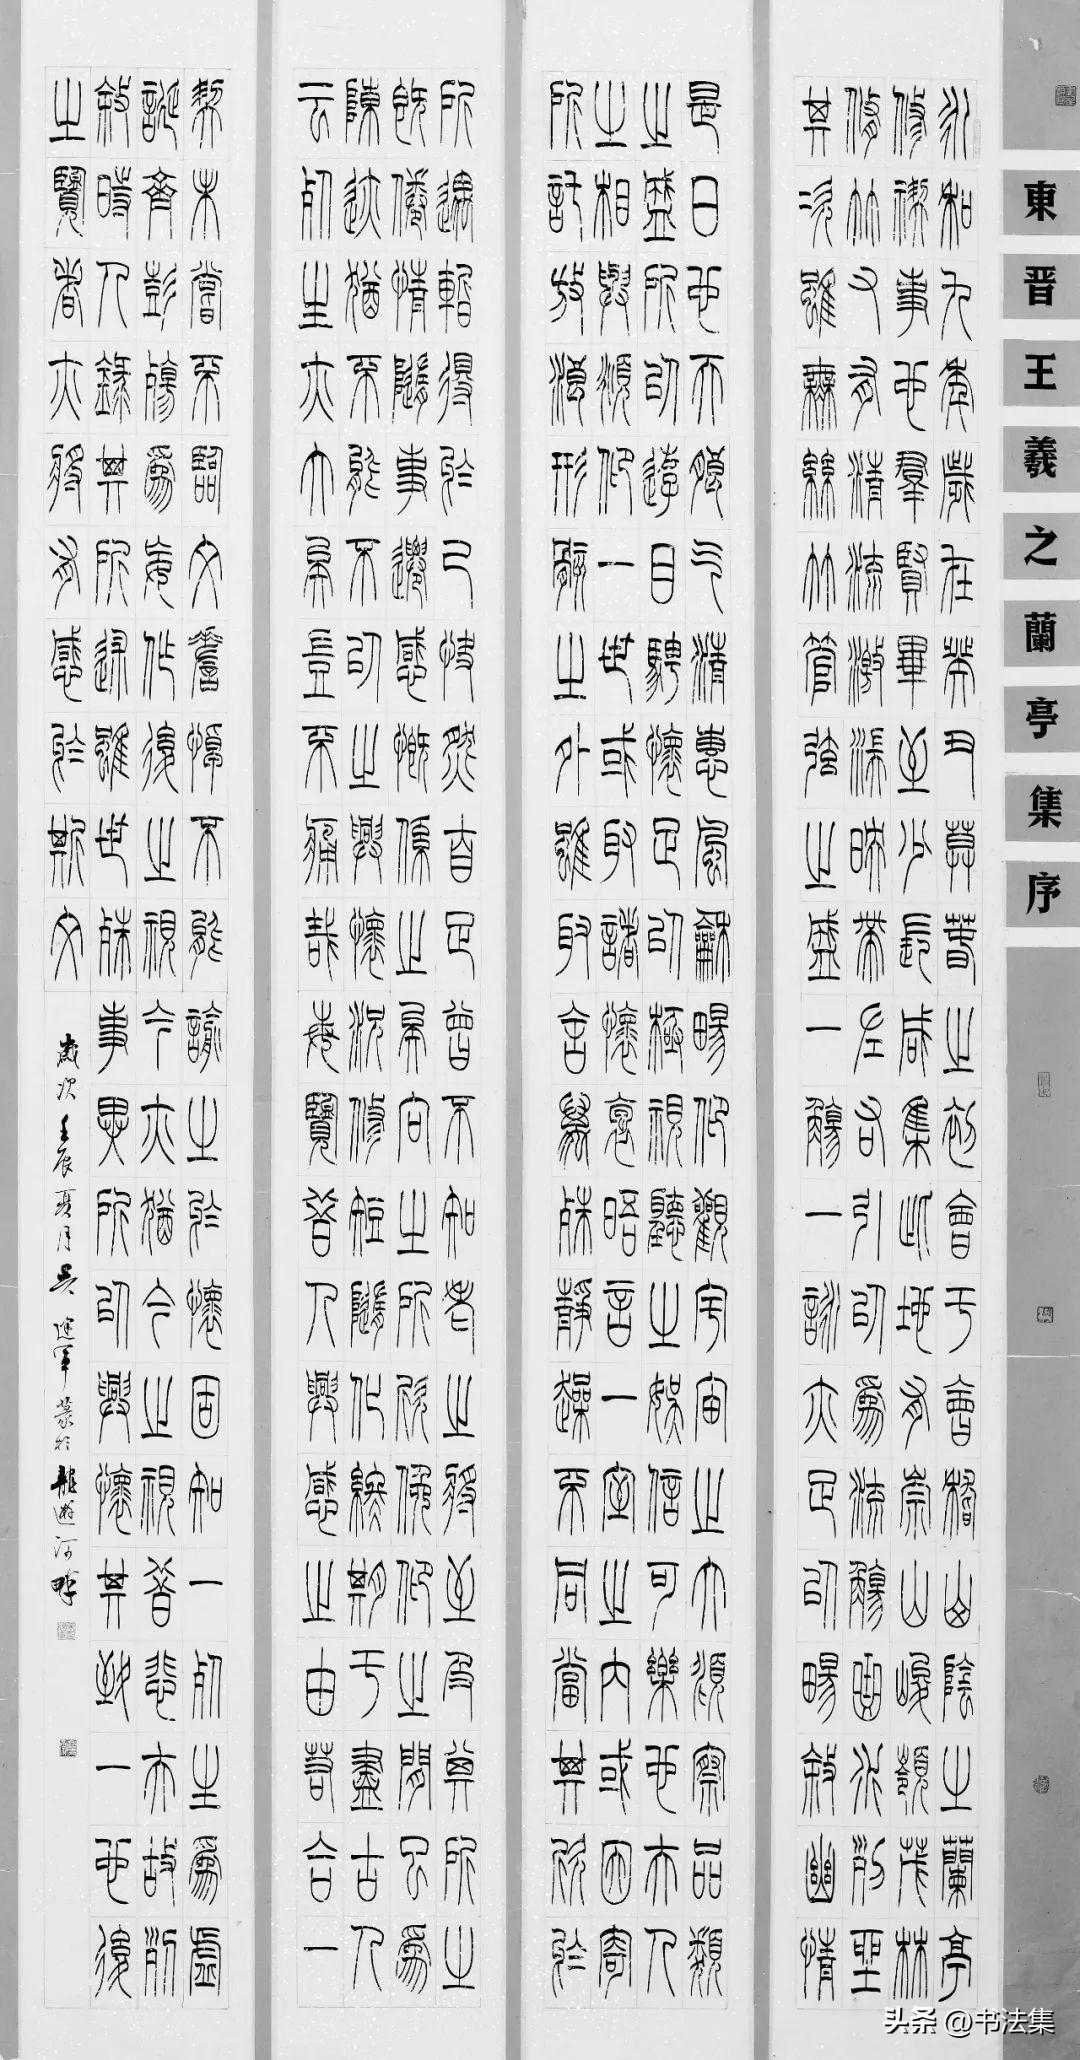 東晋王羲之蘭亭集序
永和九年歲在癸丑莫春之初會于會稽山陰之蘭亭
修禊事也群賢畢至少長咸集此地有崇山峻嶺茂林
修竹又有清流激湍映帶左右引以爲流觴曲水列坐
其次雖無絲竹管弦之盛一觴一詠亦足以暢敘幽情
是日也天朗气清惠風龢暢仰觀宇宙之大俯察品類
之盛所以遊目騁懷足以極視聽之娛信可樂也夫人
之相與俯仰一世或取諸懷抱晤言一室之內或因寄
所託放浪形骸之外雖取舍萬殊靜躁不同當其欣於
所遇暫得於己快然自足曾不知老之將至及其所之
既倦情隨事遷感慨係之矣向之所欣俛仰之閒已爲
陳迹猶不能不以之興懷況修短隨化終期于盡古人
云死生亦大矣豈不痛哉每覽昔人興感之由若合一
契未嘗不臨文嗟悼不能喻之於懷固知一死生爲虛
誕齊彭殤爲妄作後之視今亦猶今之視昔悲夫故列
敘時人錄其所述雖世殊事異所以興懷其致一也後
之覽者亦將有感於斯文
歲次壬辰夏月吳進軍篆於龍遊河畔
头条 @书法集